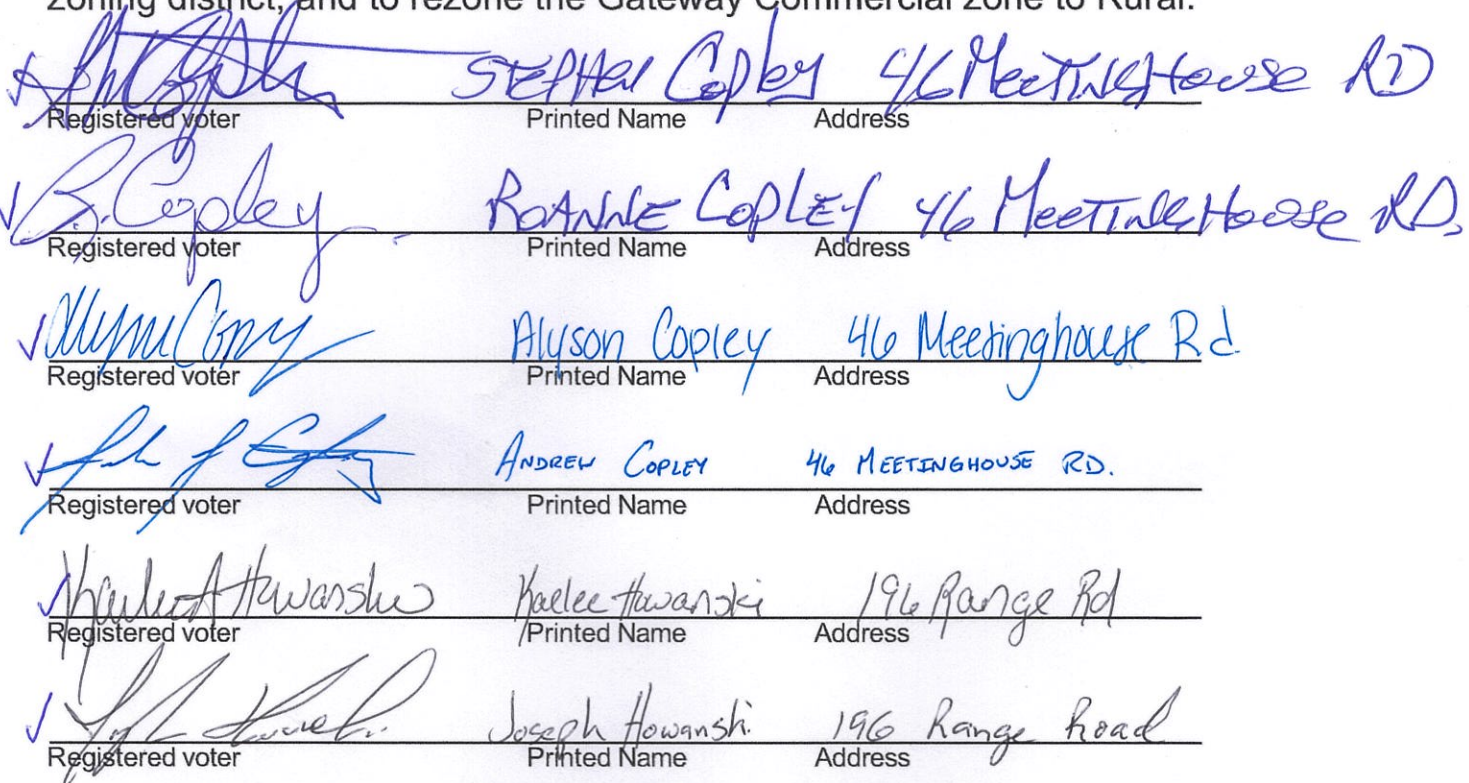 zoning district, and to rezone the Gateway Commercial zone to Rural.
STEPHEN COPLEY 46 MEETINGHOUSE RD
Registered voter Printed Name Address
B. Copley ROANNE COPLEY 46 MEETINGHOUSE RD.
Registered voter Printed Name Address
Alyson Copley 46 Meetinghouse Rd
Registered voter Printed Name Address
ANDREW COPLEY 46 MEETINGHOUSE RD.
Registered voter Printed Name Address
Kaelee Howanski 196 Range Rd
Registered voter Printed Name Address
Joseph Howanski 196 Range Road
Registered voter Printed Name Address